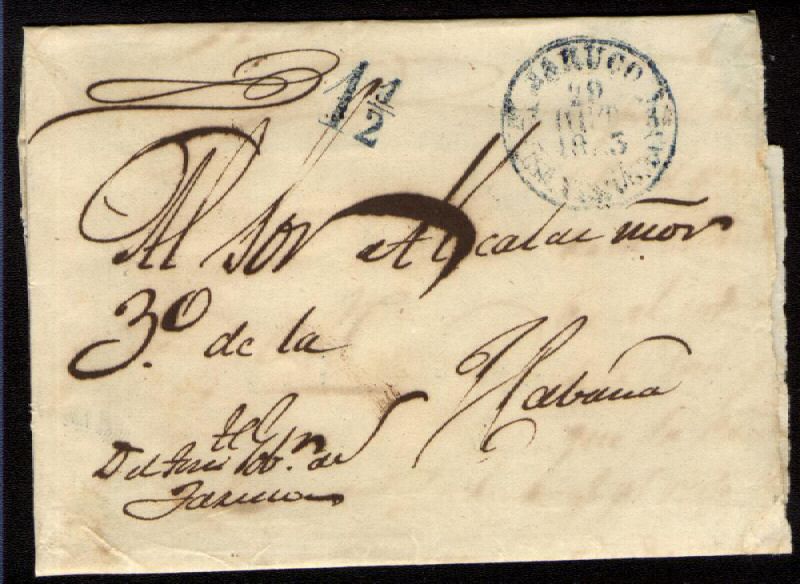 1 1/2
JARUCO
29
18 3
Al Sor Alcalde mor
3º de la
Habana
Del
de
Jaruco